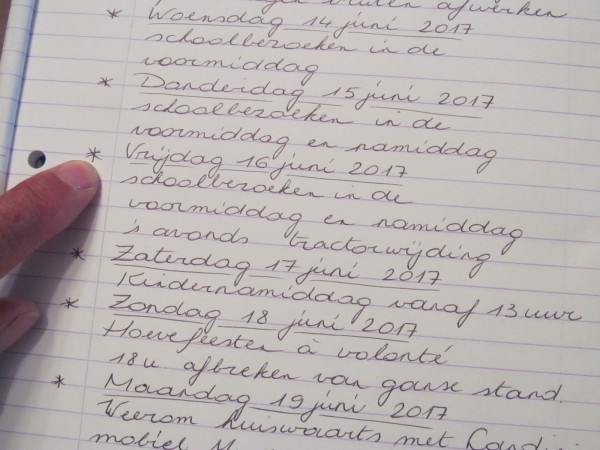 buiten afwerken
* Woensdag 14 juni 2017
schoolbezoeken in de
voormiddag
* Donderdag 15 juni 2017
schoolbezoeken in de
voormiddag en namiddag
* Vrijdag 16 juni 2017
schoolbezoeken in de
voormiddag en namiddag
's avonds tractorwijding
* Zaterdag 17 juni 2017
Kindernamiddag vanaf 13 uur
* Zondag 18 juni 2017
Hoevefeesten à volonté
18 u afbreken van ganse stand.
* Maandag 19 juni 2017
Weerom huiswaarts met
mobiel